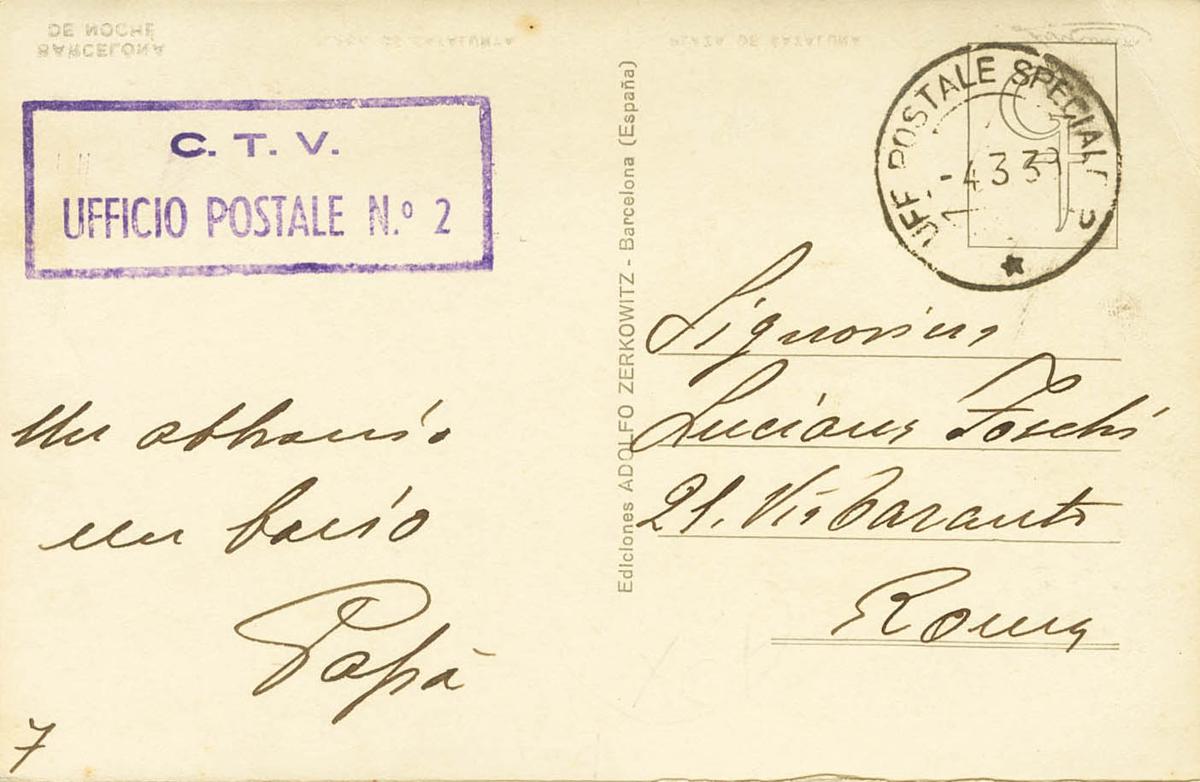 BARCELONA
DE NOCHE
PLAZA DE CATALUÑA
C. T. V.
UFFICIO POSTALE N.º 2
UFF. POSTALE SPECIALE 2
-4.3 39
Ediciones ADOLFO ZERKOWITZ - Barcelona (España)
Un abbraccio
un bacio
Papà
7
Signorina
Luciana Foschi
21. Via Taranto
Roma